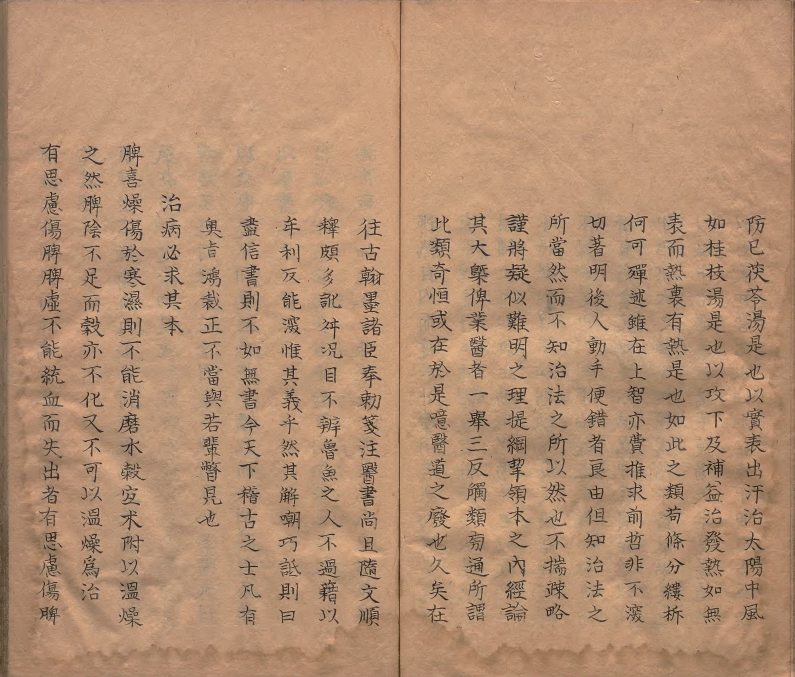 防已茯苓湯是也以實表出汗治太陽中風
如桂枝湯是也以攻下及補益治發熱如無
表而熱裏有熱是也如此之類苟條分縷柝
何可殫述雖在上智亦費推求前哲非不深
切著明後人動手便錯者良由但知治法之
所當然而不知治法之所以然也不揣疎略
謹將疑似難明之理提綱挈領本之內經論
其大槩俾業醫者一舉三反觸類旁通所謂
比類奇恒或在於是噫醫道之廢也久矣在
往古翰墨諸臣奉勅箋注醫書尚且隨文順
釋頗多訛舛况目不辨魯魚之人不過籍以
年利反能深惟其義乎然其解嘲巧詆則曰
盡信書則不如無書今天下稽古之士凡有
奥旨鴻裁正不當與若輩瞥見也
治病必求其本
脾喜燥傷於寒濕則不能消磨水穀宜术附以溫燥
之然脾陰不足而穀亦不化又不可以溫燥爲治
有思慮傷脾脾虛不能統血而失出者有思慮傷脾